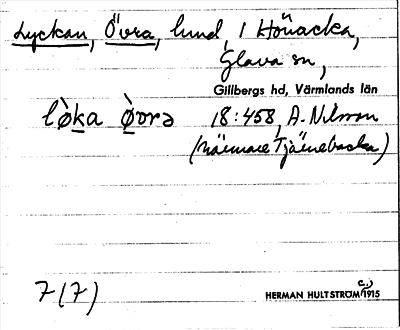 Lyckan, Övra, lund, i Hönacka,
Glava sn,
Gillbergs hd, Värmlands län
lø̀ka ø̀vrə 18:458, A. Nilsson
(närmare Tjärnebacka)
7(7)
HERMAN HULTSTRÖM 1915